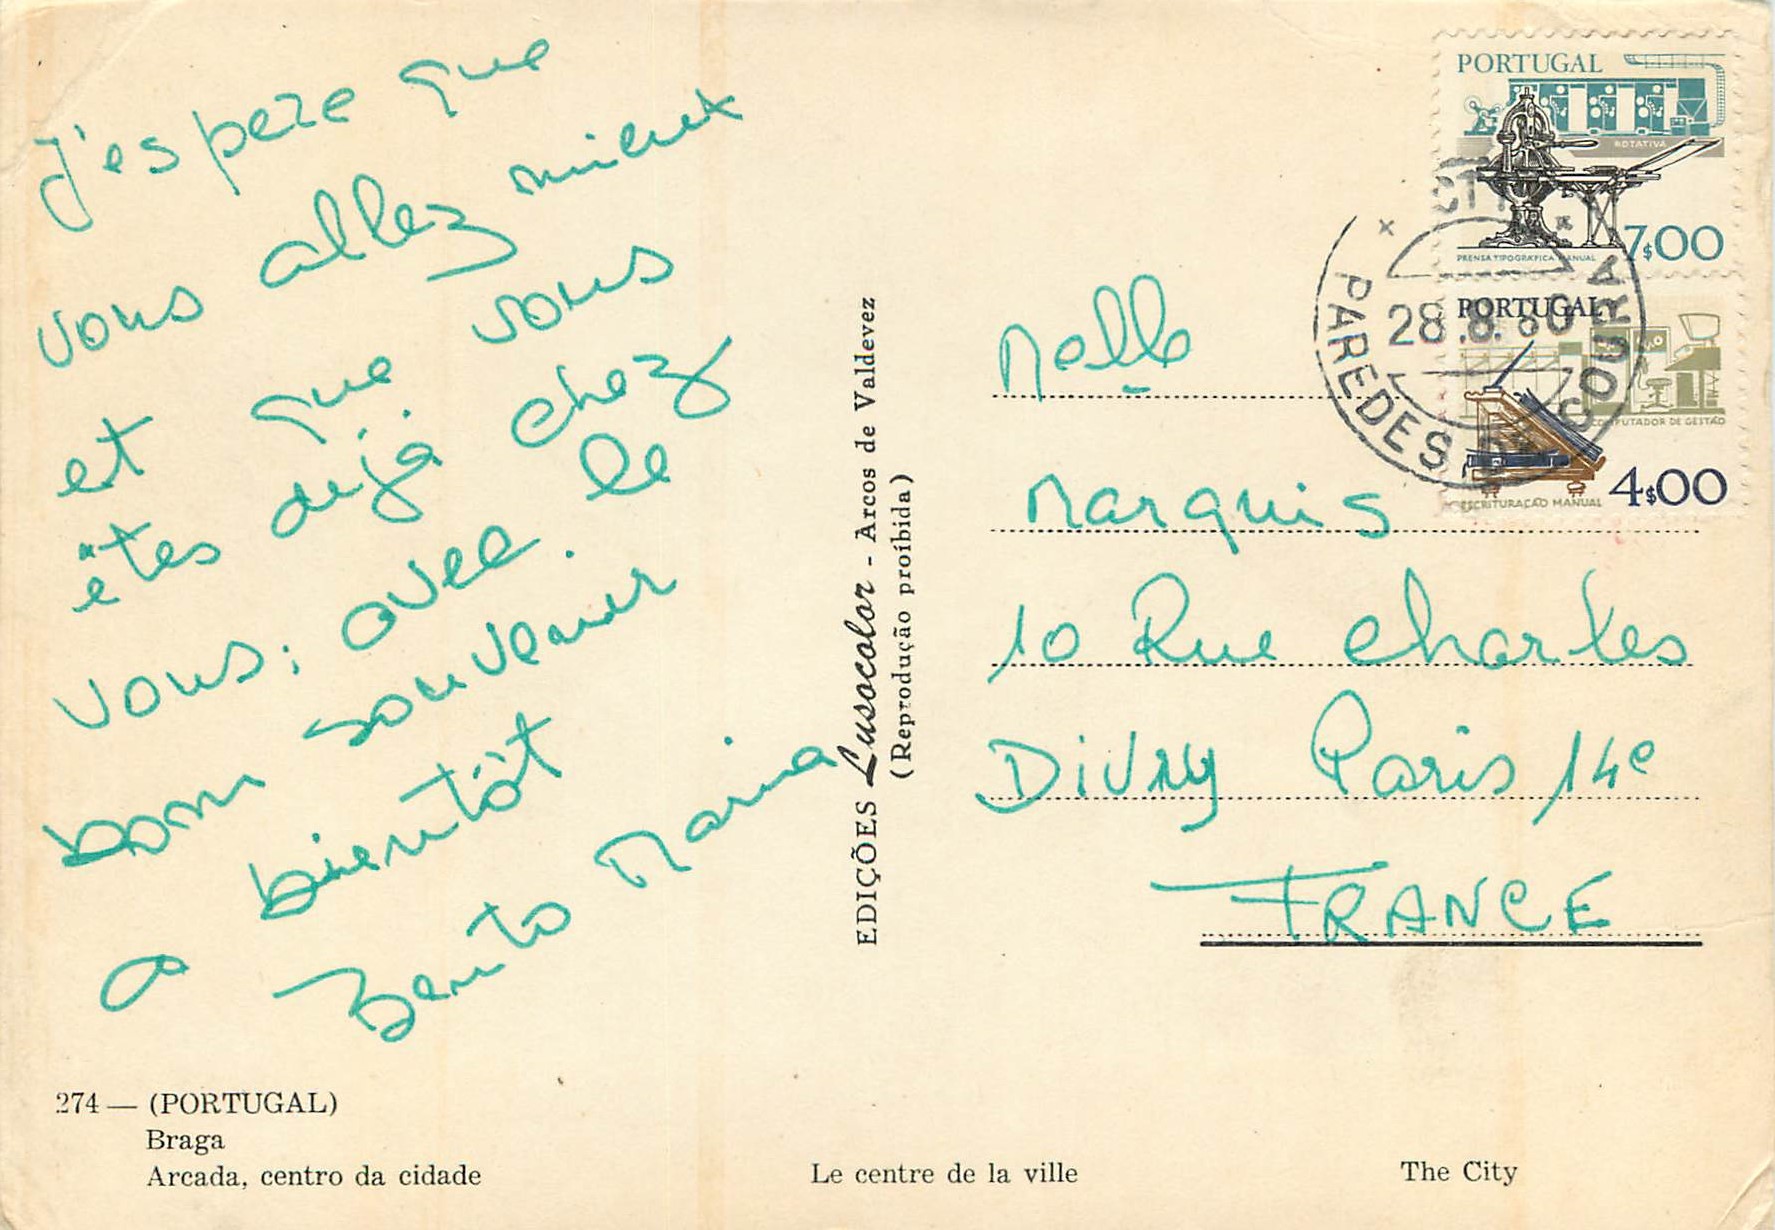 J'espere que
vous allez mieux
et que vous
êtes déjà chez
vous; avec le
bon souvenir
a bientôt
Bento Maria
274 — (PORTUGAL)
Braga
Arcada, centro da cidade
Le centre de la ville
The City
EDIÇÕES Lusocolor - Arcos de Valdevez
(Reprodução proíbida)
PORTUGAL
ROTATIVA
PRENSA TIPOGRÁFICA MANUAL
7$00
PORTUGAL
COMPUTADOR DE GESTÃO
ESCRITURAÇÃO MANUAL
4$00
CTT
28.8.80
PAREDES DE COURA
Melle
Marquis
10 Rue Charles
Divry Paris 14e
FRANCE